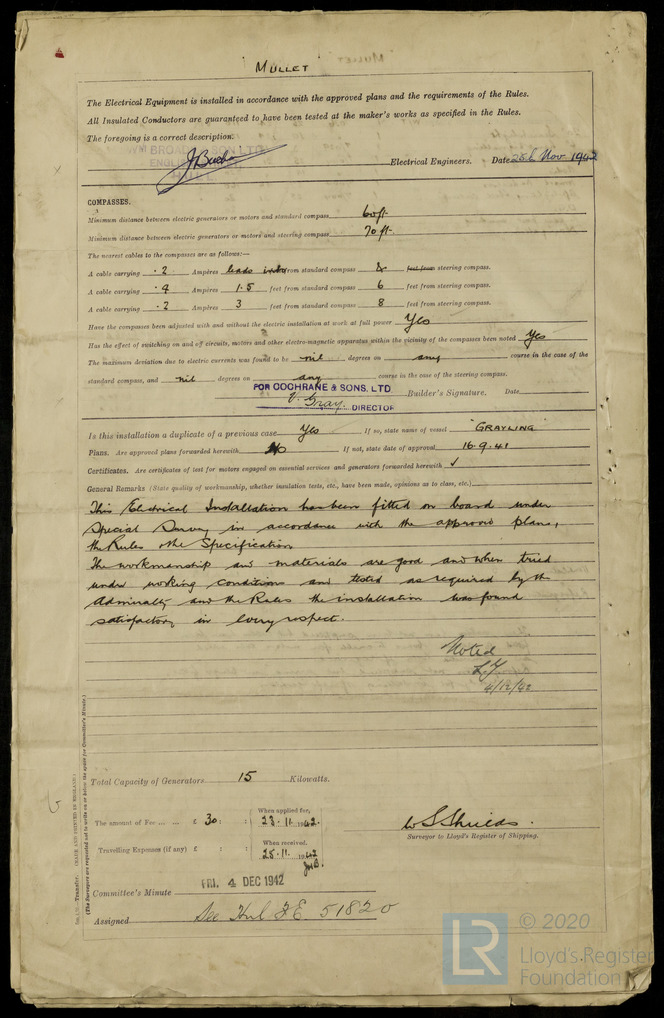 "MULLET"
The Electrical Equipment is installed in accordance with the approved plans and the requirements of the Rules.
All Insulated Conductors are guaranteed to have been tested at the maker's works as specified in the Rules.
The foregoing is a correct description.
WM BROADY & SON LTD
ENGLISH
HULL
Electrical Engineers. Date 25th Nov. 1942
COMPASSES.
Minimum distance between electric generators or motors and standard compass 60 ft.
Minimum distance between electric generators or motors and steering compass 70 ft.
The nearest cables to the compasses are as follows:—
A cable carrying .2 Ampères leads into from standard compass & feet from steering compass.
A cable carrying .4 Ampères 1.5 feet from standard compass 6 feet from steering compass.
A cable carrying .2 Ampères 3 feet from standard compass 8 feet from steering compass.
Have the compasses been adjusted with and without the electric installation at work at full power Yes
Has the effect of switching on and off circuits, motors and other electro-magnetic apparatus within the vicinity of the compasses been noted Yes
The maximum deviation due to electric currents was found to be nil degrees on any course in the case of the
standard compass, and nil degrees on any course in the case of the steering compass.
FOR COCHRANE & SONS, LTD
V. Gray. DIRECTOR Builder's Signature. Date
Is this installation a duplicate of a previous case Yes If so, state name of vessel "GRAYLING"
Plans. Are approved plans forwarded herewith No If not, state date of approval 16.9.41
Certificates. Are certificates of test for motors engaged on essential services and generators forwarded herewith ✓
General Remarks (State quality of workmanship, whether insulation tests, etc., have been made, opinions as to class, etc.)
This Electrical Installation has been fitted on board under
Special Survey in accordance with the approved plans,
the Rules & the Specification
The workmanship and materials are good and when tried
under working conditions and tested as required by the
Admiralty and the Rules the installation was found
satisfactory in every respect.
Noted
L.Y.
4/12/42
Total Capacity of Generators 15 Kilowatts.
The amount of Fee ... ... £ 30 : : When applied for, 23.11.1942.
W S Shields.
Surveyor to Lloyd's Register of Shipping.
Travelling Expenses (if any) £ : : When received, 25.11.1942
FRI. 4 DEC 1942
Committee's Minute
Assigned See Hul F.E 51820
Transfer. (MADE AND PRINTED IN ENGLAND.)
(The Surveyors are requested not to write on or below the space for Committee's Minute.)
© 2020
LR
Lloyd's Register
Foundation